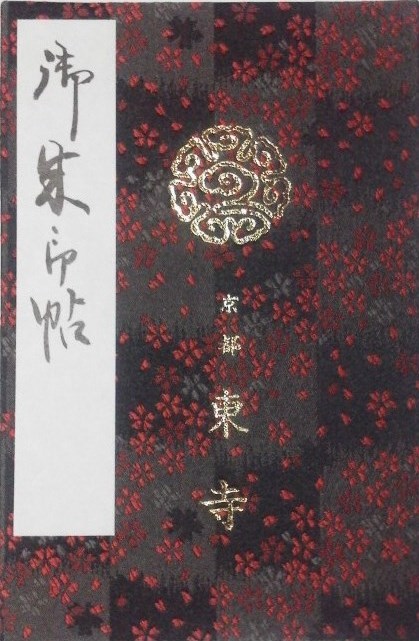 御朱印帖
京都 東寺